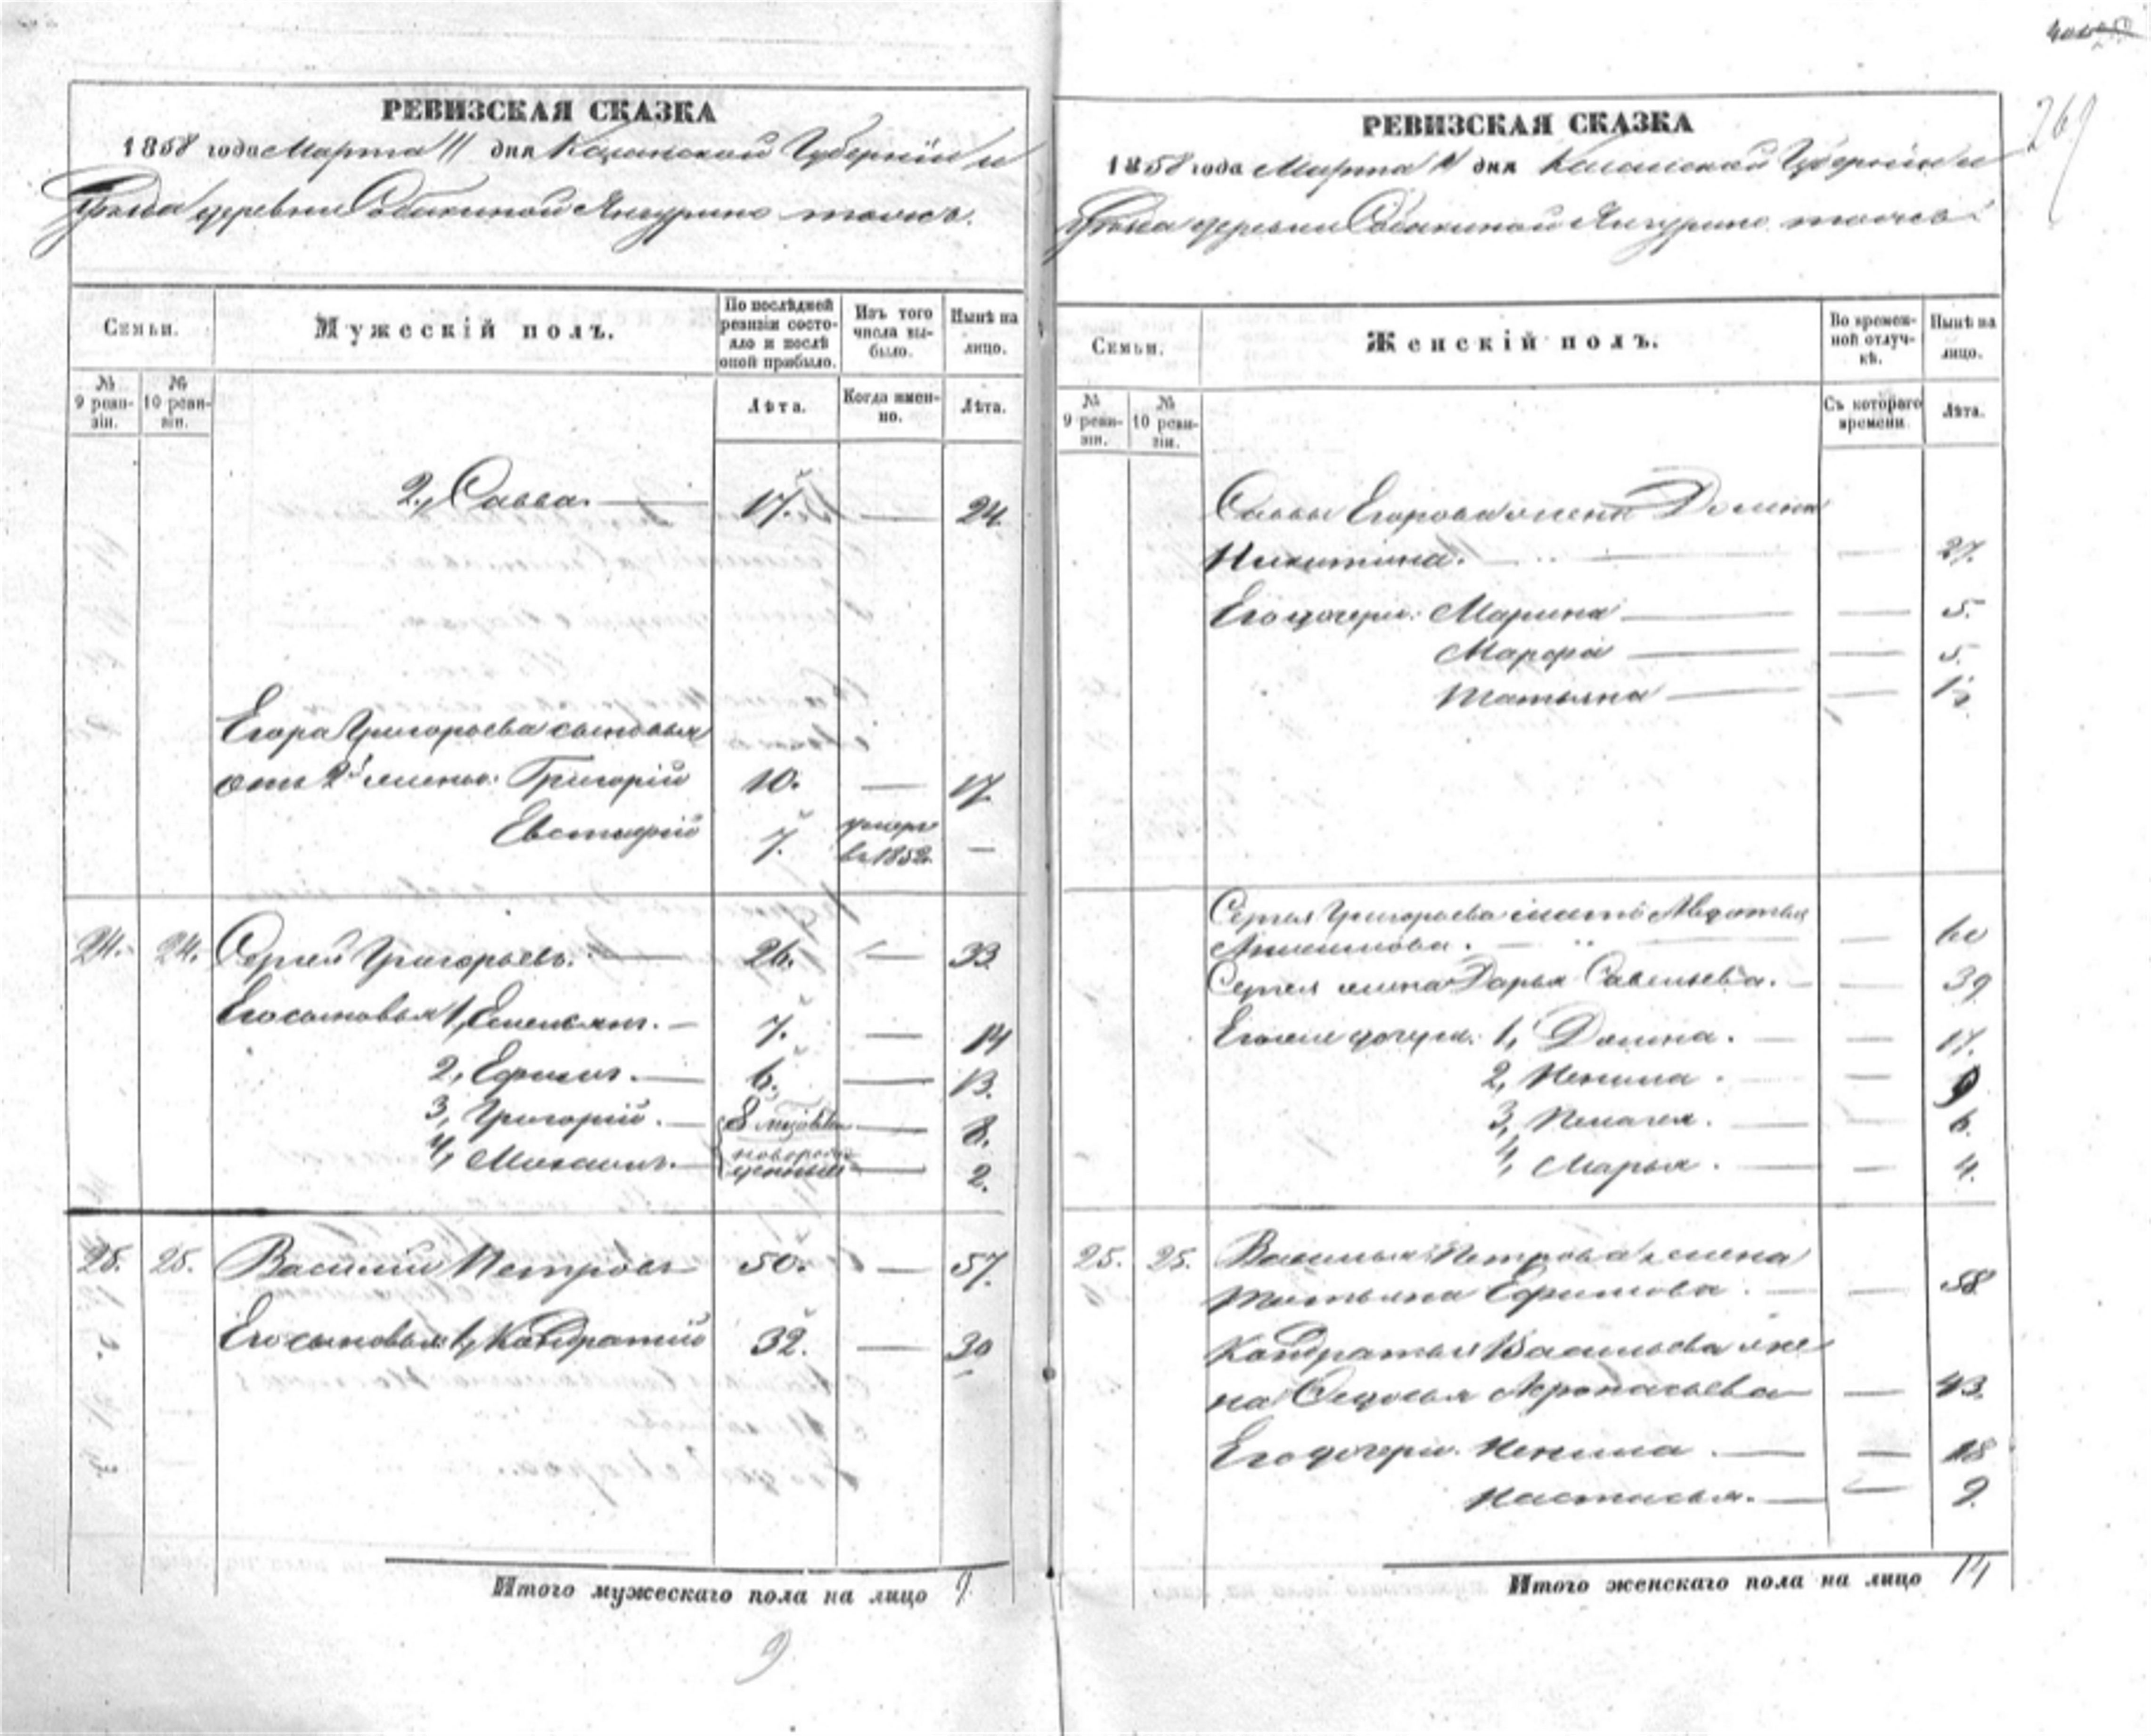 РЕВИЗСКАЯ СКАЗКА
1858 года Марта 11 дня Казанской Губернiи и
Уѣзда деревни Собакиной Янгурино тожъ.
Семьи.
Мужескiй полъ.
По послѣдней ревизiи состояло и послѣ оной прибыло.
Изъ того числа выбыло.
Нынѣ на лицо.
№ 9 ревизiи.
№ 10 ревизiи.
Лѣта.
Когда именно.
Лѣта.
2, Савва. — 17. — 24.
Егора Григорьева сыновья
отъ 2й жены: Григорiй 10. — 17.
Евстафiй 7. умеръ въ 1852. —
24. 24. Сергей Григорьевъ. — 26. — 33.
Его сыновья 1, Емельянъ. — 7. — 14
2, Ефимъ. — 6. — 13.
3, Григорiй. — 8.
4, Михаилъ. — новорожденный — 2.
25. 25. Василiй Петровъ 50. — 57.
Его сыновья: 1, Кондратiй 32. — 39
Итого мужескаго пола на лицо 9.
9
269
РЕВИЗСКАЯ СКАЗКА
1858 года Марта 11 дня Казанской Губернiи и
Уѣзда деревни Собакиной Янгурино тожъ.
Семьи.
Женскiй полъ.
Во временной отлучкѣ.
Нынѣ на лицо.
№ 9 ревизiи.
№ 10 ревизiи.
Съ котораго времени.
Лѣта.
Саввы Егорова жена Домна
Никитина. — — 27.
Его дочери: Марина — — 5.
Марфа — — 5.
Татьяна — — 1½
Сергея Григорьева мать Авдотья
— — 60
Сергея жена Дарья Савельева. — — 39
Его же дочери: 1, Домна. — — 17.
2, Ненила. — — 9
3, Пелагея. — — 6.
4, Марья. — — 4.
25. 25. Василья Петрова жена
Татьяна Ефимова. — — 58
Кондратья Васильева же
на Федосья Афонасьева — 43.
Его дочери: Ненила. — — 18
Настасья. — — 9.
Итого женскаго пола на лицо 14